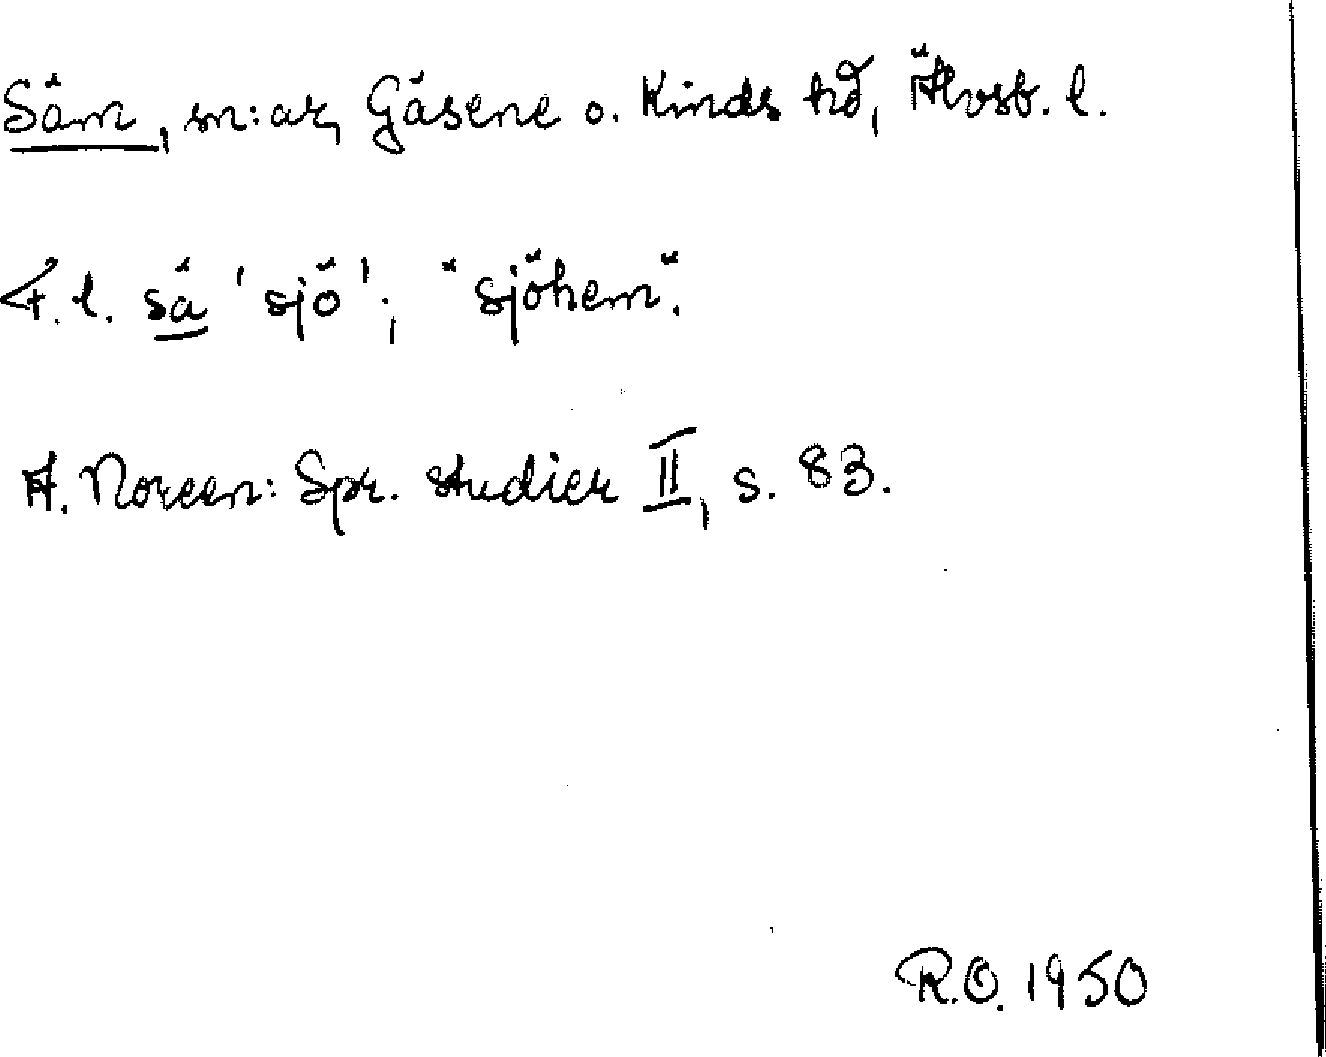 Säm, sn:ar, Gäsene o. Kinds hd, Älvsb. l.
F.l. sä 'sjö'; "sjöhem".
A. Noreen: Spr. studier II, s. 83.
R.O. 1950